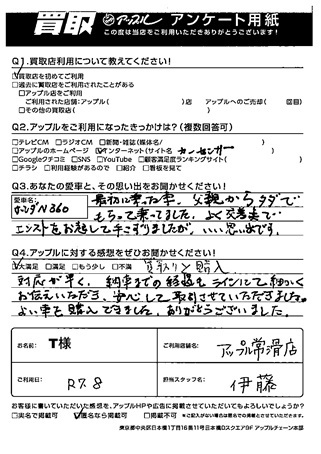 買取 アップル アンケート用紙
この度は当店をご利用いただきありがとうございます!
Q1.買取店利用について教えてください!
☑買取店を初めてご利用
□過去に買取店をご利用されたことがある
□アップル店をご利用
ご利用された店舗:アップル( )店 アップルへのご売却( 回目)
□その他の買取店をご利用
Q2.アップルをご利用になったきっかけは?(複数回答可)
□テレビCM □ラジオCM □新聞・雑誌(媒体名/ )
□アップルのホームページ ☑インターネット(サイト名 カーセンサー )
□Googleクチコミ □SNS □YouTube □顧客満足度ランキングサイト( )
□チラシ □利用経験があるので □紹介 □看板を見て
Q3.あなたの愛車と、その思い出をお聞かせください!
愛車名:
ホンダN360
最初に乗った車。父親からタダで
もらって乗ってました。よく交差点で
エンストをお起して手こずりましたが、いい思い出です。
Q4.アップルに対する感想をぜひお聞かせください!
☑大満足 □満足 □もう少し □不満 買取りと購入
対応が早く、納車までの経過もラインにて細かく
お伝えいただき、安心して取引させていただきました。
よい車を購入できました。ありがとうございました。
お名前: T様
ご利用店舗名: アップル常滑店
ご利用日: R7.8
担当スタッフ名: 伊藤
お客様に書いていただいた感想を、アップルHPや広告に掲載させていただいてもよろしいでしょうか?
□実名で掲載可 ☑匿名なら掲載可 □掲載不可
東京都中央区日本橋1丁目16番11号日本橋Dスクエア9F アップルチェーン本部